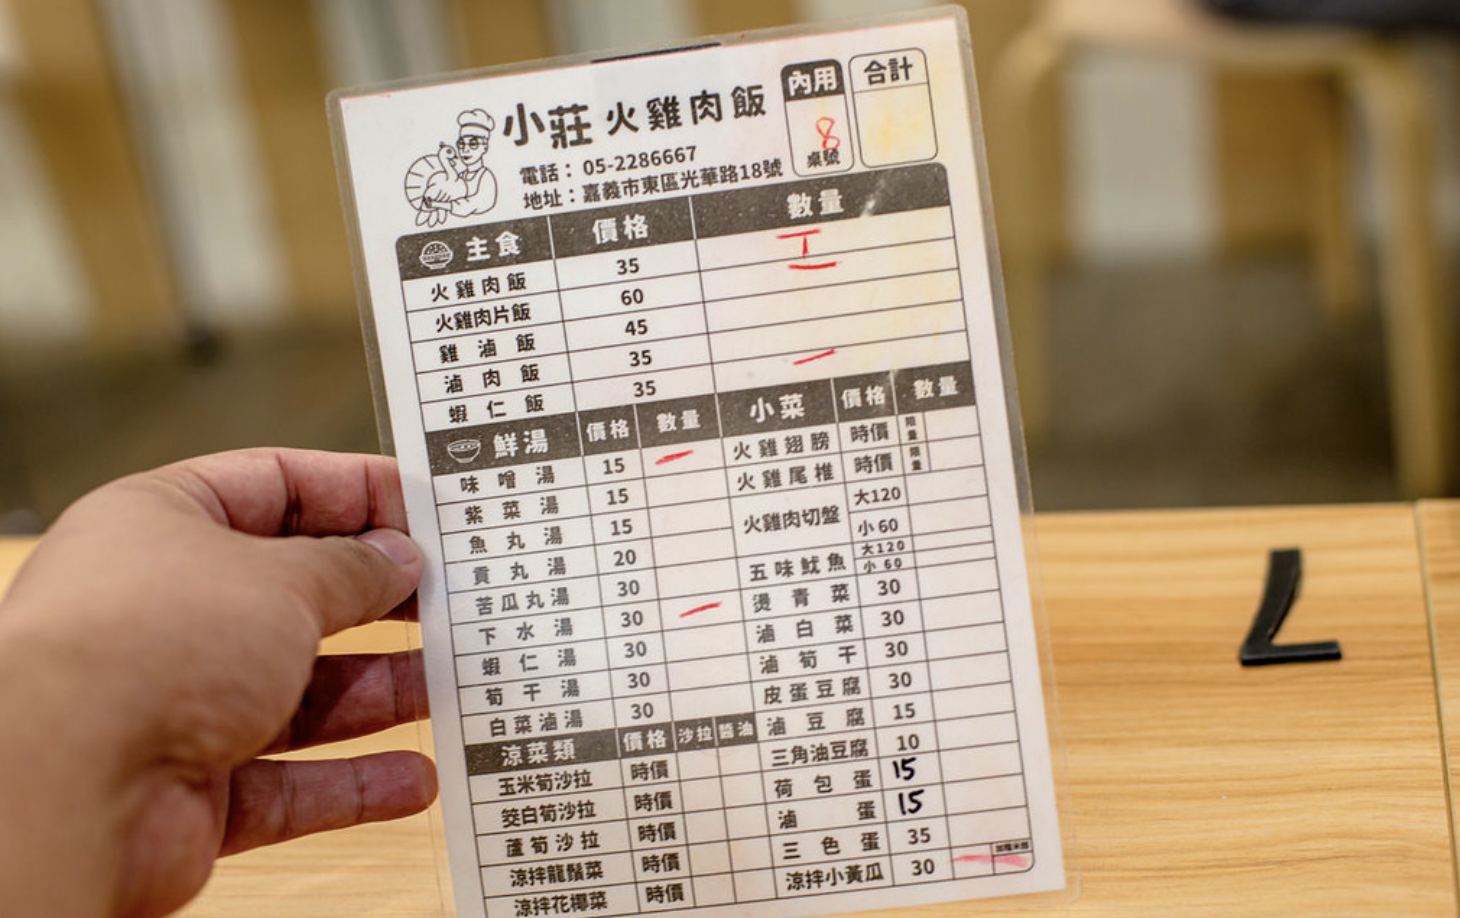 小莊 火雞肉飯
電話： 05-2286667
地址：嘉義市東區光華路18號
內用
8
桌號
合計
主食 價格 數量
火雞肉飯 35 T
火雞肉片飯 60 一
雞滷飯 45
滷肉飯 35
蝦仁飯 35 一
鮮湯 價格 數量
味噌湯 15 一
紫菜湯 15
魚丸湯 15
貢丸湯 20
苦瓜丸湯 30
下水湯 30 一
蝦仁湯 30
筍干湯 30
白菜滷湯 30
涼菜類 價格 沙拉 醬油
玉米筍沙拉 時價
筊白筍沙拉 時價
蘆筍沙拉 時價
涼拌龍鬚菜 時價
涼拌花椰菜 時價
小菜 價格 數量
火雞翅膀 時價 限量
火雞尾椎 時價 限量
火雞肉切盤 大120
小60
五味魷魚 大120
小60
燙青菜 30
滷白菜 30
滷筍干 30
皮蛋豆腐 30
滷豆腐 15
三角油豆腐 10
荷包蛋 15
滷蛋 15
三色蛋 35
涼拌小黃瓜 30 一
7